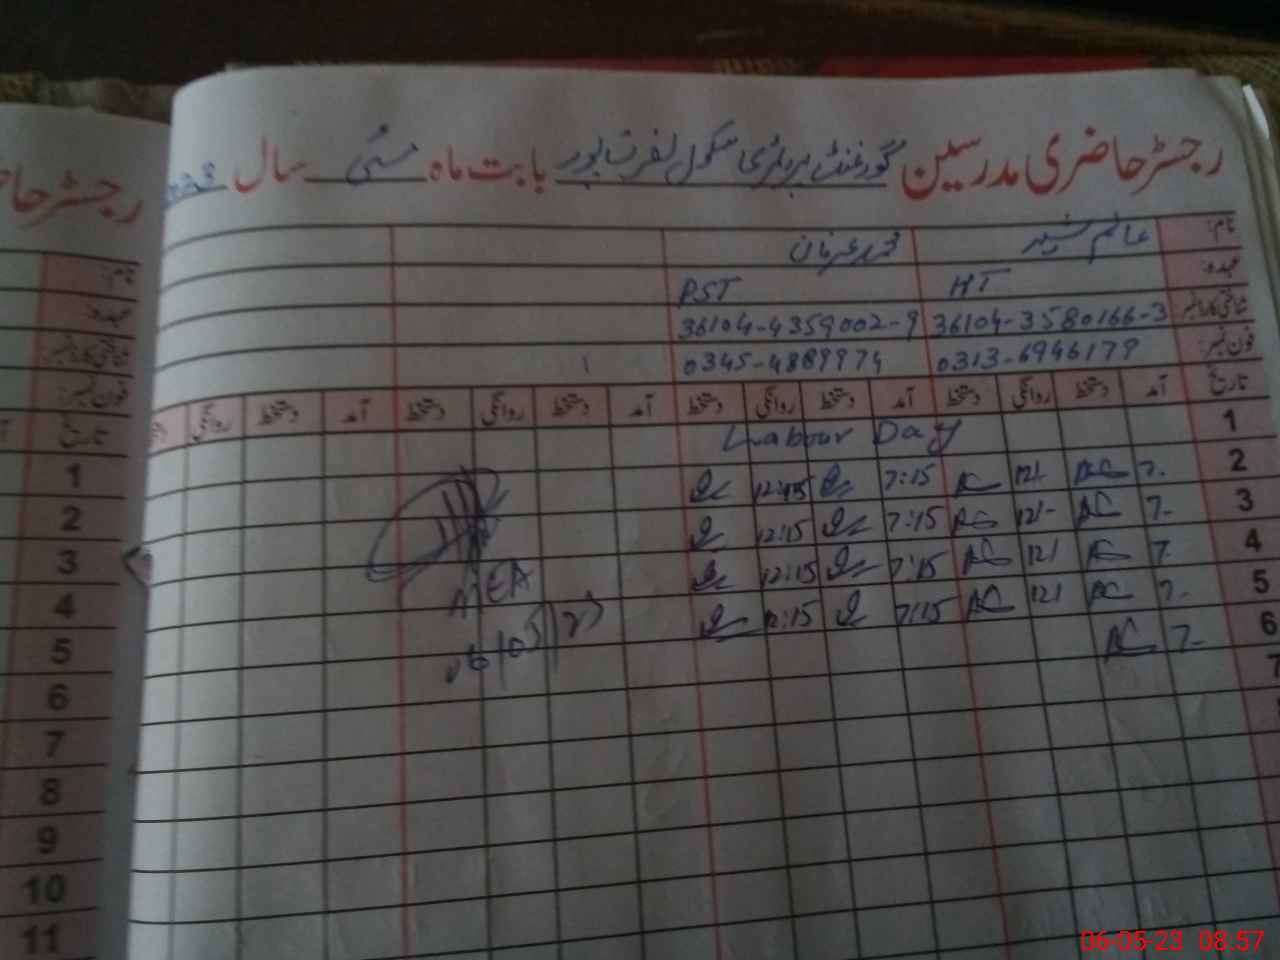 رجسٹر حاضری مدرسین گورنمنٹ پرائمری سکول نصرت پور بابت ماہ مئی سال 2023
رجسٹر حا
نام:
محمد عرفان
عہدہ: HT PST
شناختی کارڈ نمبر: 36104-3580166-3 36104-4359002-9
فون نمبر: 0313-6946179 0345-4889974
تاریخ آمد دستخط روانگی دستخط آمد دستخط روانگی دستخط آمد دستخط روانگی دستخط آمد دستخط روانگی
1 Labour Day
2 7:15 12:15
3 7:15 12:15
4 7:15 12:15
5 7:15 12:15
6
7
AEA
06/05/23
نام:
عہدہ:
شناختی کارڈ نمبر:
فون نمبر:
تاریخ
1
2
3
4
5
6
7
8
9
10
11
06-05-23 08:57